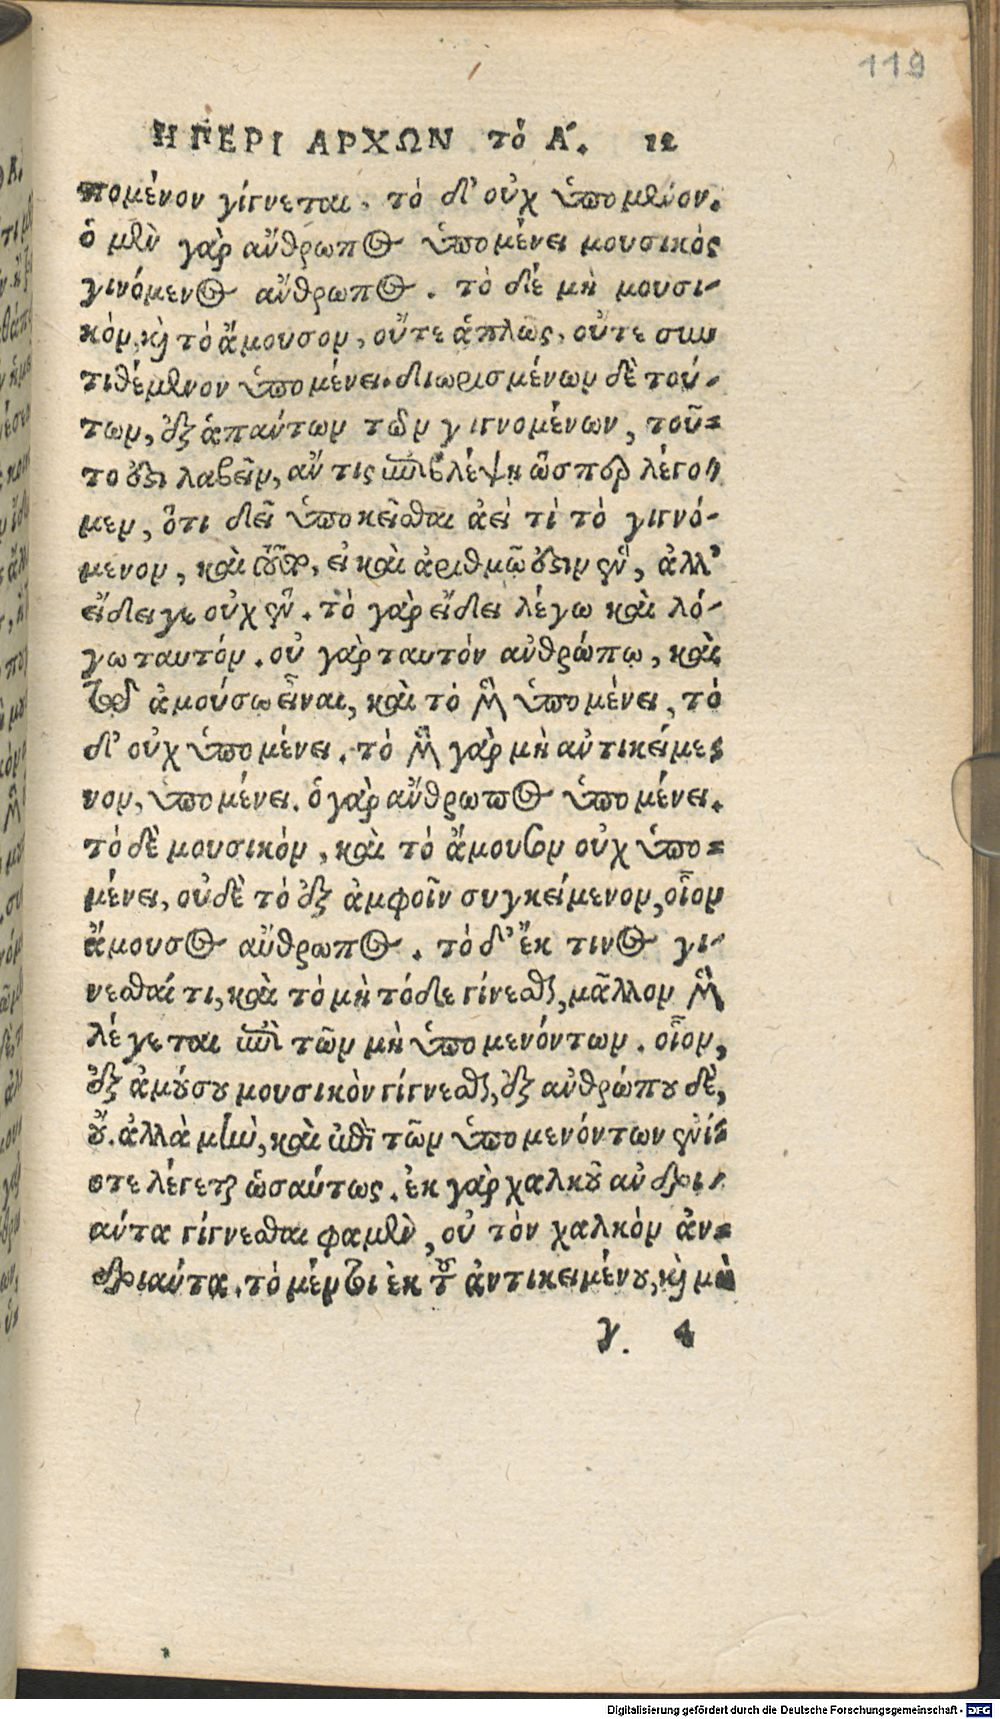 119
Η ΠΕΡΙ ΑΡΧΩΝ τὸ Α. 12
πομένον γίγνεται. τὸ δ' οὐχ ὑπομένον.
ὁ μὲν γὰρ ἄνθρωπος ὑπομένει μουσικὸς
γινόμενος ἄνθρωπος. τὸ δὲ μὴ μουσι-
κὸν, καὶ τὸ ἄμουσον, οὔτε ἁπλῶς, οὔτε συν
τιθέμενον ὑπομένει. διωρισμένων δὲ τού-
των, ἐξ ἁπάντων τῶν γιγνομένων, τοῦ-
το ἔστι λαβεῖν, ἄν τις ἐπιβλέψη ὥσπερ λέγο-
μεν, ὅτι δεῖ ὑποκεῖσθαι ἀεί τὶ τὸ γιγνό-
μενον, καὶ τοῦτο, εἰ καὶ ἀριθμῷ ἔστιν ἓν, ἀλλ'
εἴδει γε οὐχ ἕν. τὸ γὰρ εἴδει λέγω καὶ λό-
γω ταυτόν. οὐ γὰρ ταυτόν ἀνθρώπω, καὶ
τὸ ἀμούσω εἶναι, καὶ τὸ μὲν ὑπομένει, τὸ
δ' οὐχ ὑπομένει. τὸ μὲν γὰρ μὴ ἀντικείμε-
νον, ὑπομένει. ὁ γὰρ ἄνθρωπος ὑπομένει.
τὸ δὲ μουσικόν, καὶ τὸ ἄμουσον οὐχ ὑπο-
μένει, οὐδὲ τὸ ἐξ ἀμφοῖν συγκείμενον, οἷον
ἄμουσος ἄνθρωπος. τὸ δ' ἔκ τινος γί-
νεσθαί τι, καὶ τὸ μὴ τόδε γίνεσθαι, μᾶλλον μὲν
λέγεται ἐπὶ τῶν μὴ ὑπομενόντων. οἷον,
ἐξ ἀμούσου μουσικὸν γίγνεσθαι, ἐξ ἀνθρώπου δὲ,
οὔ. ἀλλὰ μὴν, καὶ ἐπὶ τῶν ὑπομενόντων ἐνί-
οτε λέγεται ὡσαύτως. ἐκ γὰρ χαλκοῦ ἀνδρι-
άντα γίγνεσθαι φαμὲν, οὐ τὸν χαλκὸν ἀν-
δριάντα. τὸ μέντοι ἐκ τοῦ ἀντικειμένου, καὶ μὴ
γ. 4
Digitalisierung gefördert durch die Deutsche Forschungsgemeinschaft - DFG